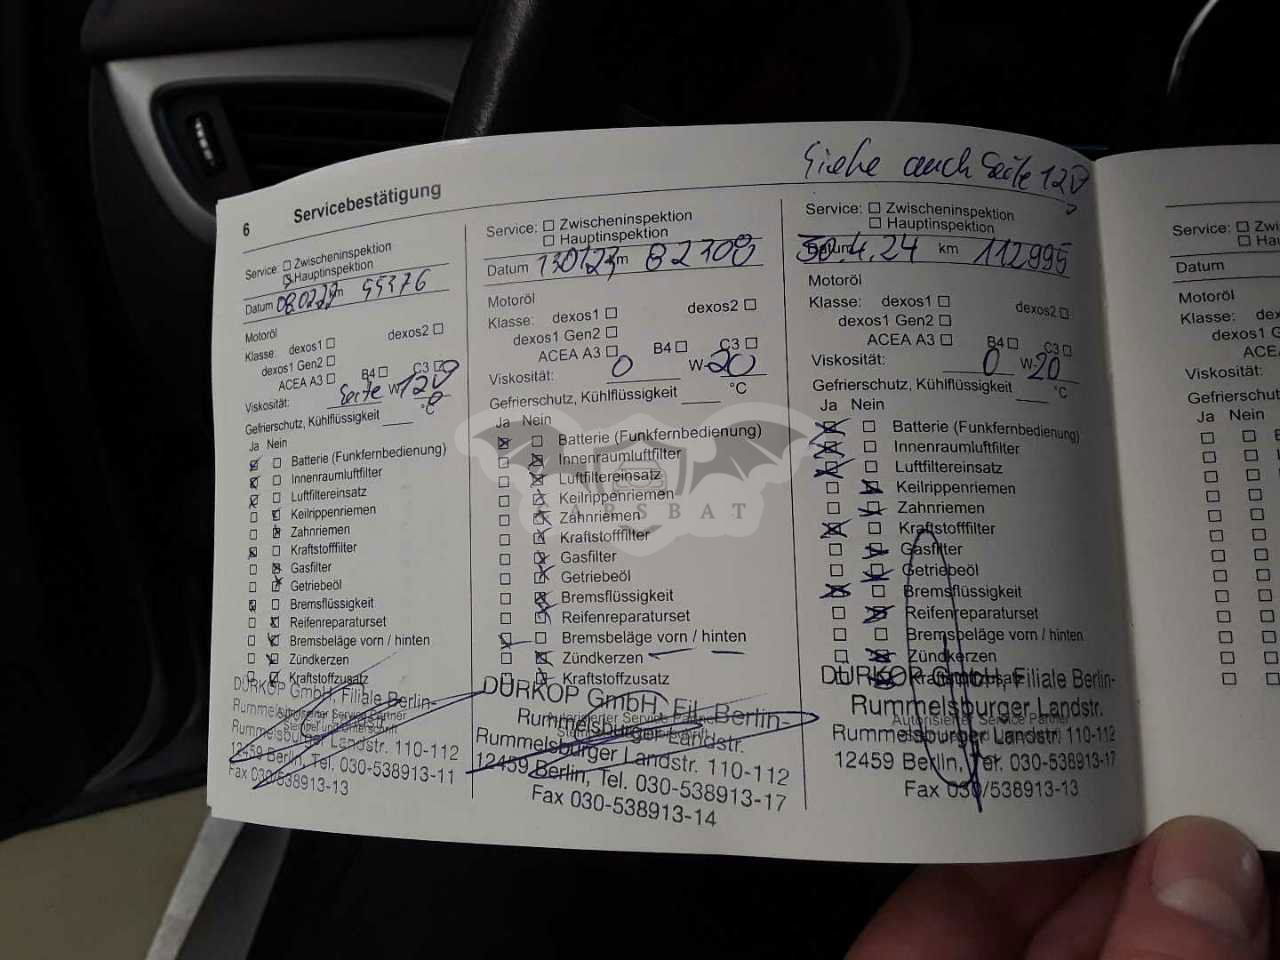 6 Servicebestätigung
Siehe auch Seite 120
Service: Zwischeninspektion
Hauptinspektion
Datum 08.02.22 km 55376
Motoröl
Klasse: dexos1 dexos2
dexos1 Gen2
ACEA A3 B4 C3
Viskosität: Seite W 120
Gefrierschutz, Kühlflüssigkeit °C
Ja Nein
Batterie (Funkfernbedienung)
Innenraumluftfilter
Luftfiltereinsatz
Keilrippenriemen
Zahnriemen
Kraftstofffilter
Gasfilter
Getriebeöl
Bremsflüssigkeit
Reifenreparaturset
Bremsbeläge vorn / hinten
Zündkerzen
Kraftstoffzusatz
DÜRKOP GmbH, Filiale Berlin-
Autorisierter Service Partner
Stempel und Unterschrift
Rummelsburger Landstr. 110-112
12459 Berlin, Tel. 030-538913-11
Fax 030/538913-13
Service: Zwischeninspektion
Hauptinspektion
Datum km 82308
Motoröl
Klasse: dexos1 dexos2
dexos1 Gen2
ACEA A3 B4 C3
Viskosität: 0 W-20
Gefrierschutz, Kühlflüssigkeit °C
Ja Nein
Batterie (Funkfernbedienung)
Innenraumluftfilter
Luftfiltereinsatz
Keilrippenriemen
Zahnriemen
Kraftstofffilter
Gasfilter
Getriebeöl
Bremsflüssigkeit
Reifenreparaturset
Bremsbeläge vorn / hinten
Zündkerzen
Kraftstoffzusatz
DÜRKOP GmbH, Fil. Berlin-
Rummelsburger Landstr.
Autorisierter Service Partner
Rummelsburger Landstr. 110-112
12459 Berlin, Tel. 030-538913-17
Fax 030-538913-14
Service: Zwischeninspektion
Hauptinspektion
Datum 30.4.24 km 112995
Motoröl
Klasse: dexos1 dexos2
dexos1 Gen2
ACEA A3 B4 C3
Viskosität: 0 W-20
Gefrierschutz, Kühlflüssigkeit °C
Ja Nein
Batterie (Funkfernbedienung)
Innenraumluftfilter
Luftfiltereinsatz
Keilrippenriemen
Zahnriemen
Kraftstofffilter
Gasfilter
Getriebeöl
Bremsflüssigkeit
Reifenreparaturset
Bremsbeläge vorn / hinten
Zündkerzen
Kraftstoffzusatz
DÜRKOP GmbH, Filiale Berlin-
Rummelsburger Landstr.
Autorisierter Service Partner
Rummelsburger Landstr. 110-112
12459 Berlin, Tel. 030-538913-17
Fax 030/538913-13
Service: Zwi
Hau
Datum
Motoröl
Klasse: dex
dexos1 G
ACE
Viskosität:
Gefrierschut
Ja Nein
CARSBAT